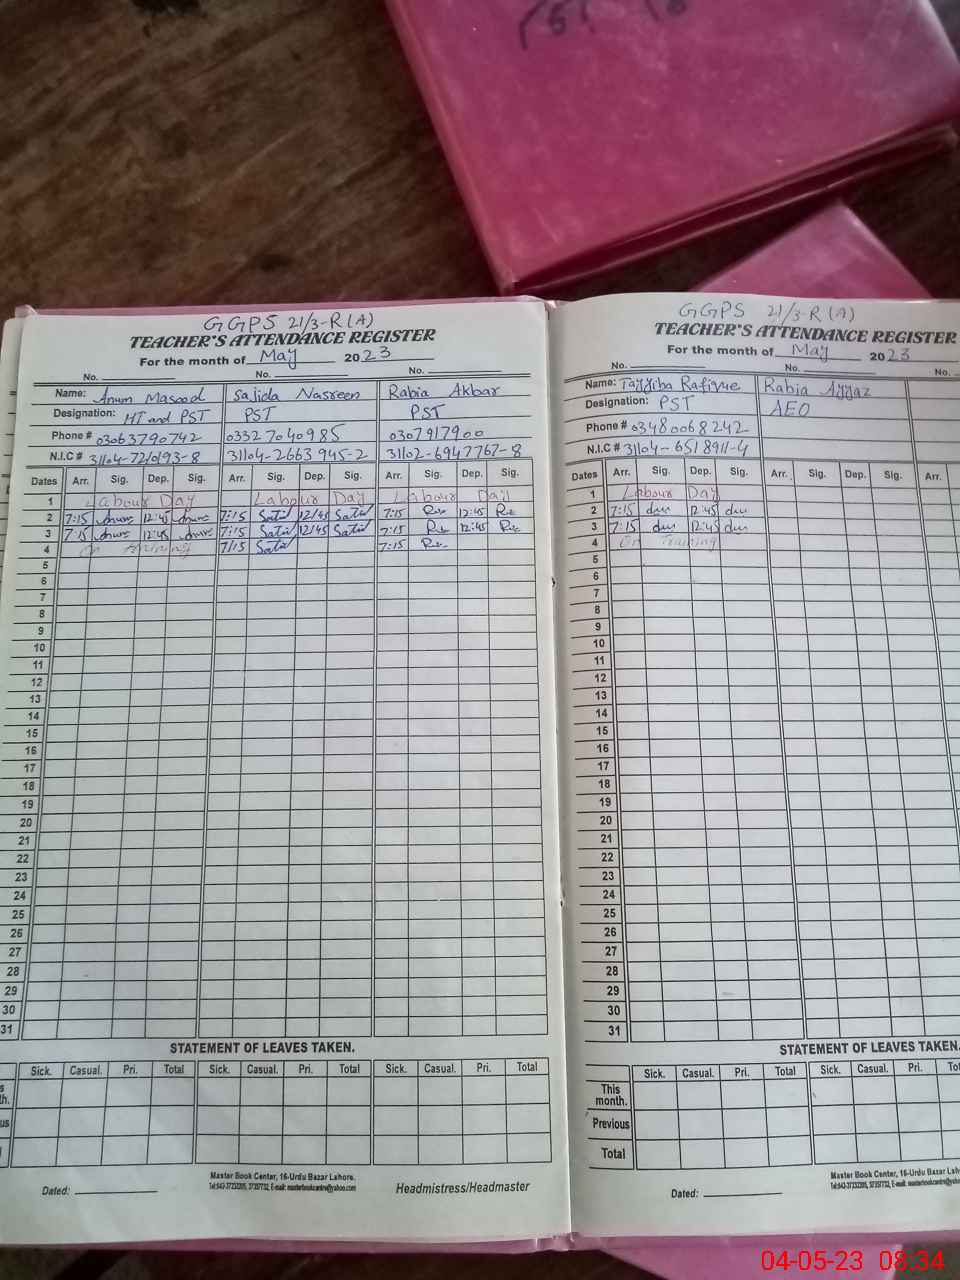 GGPS 21/3-R (A)
TEACHER'S ATTENDANCE REGISTER
For the month of May 2023
No. No. No.
Name: Anum Masood Sajida Nasreen Rabia Akbar
Designation: HT and PST PST PST
Phone # 03063790742 03327040985 0307917900
N.I.C # 31104-7210193-8 31104-2663945-2 31102-6947767-8
Dates Arr. Sig. Dep. Sig. Arr. Sig. Dep. Sig. Arr. Sig. Dep. Sig.
1 Labour Day Labour Day Labour Day
2 7:15 12:45 7:15 12:45 7:15 12:45
3 7:15 12:45 7:15 12:45 7:15 12:45
4 On training 7:15 7:15
5
6
7
8
9
10
11
12
13
14
15
16
17
18
19
20
21
22
23
24
25
26
27
28
29
30
31
STATEMENT OF LEAVES TAKEN.
Sick. Casual. Pri. Total Sick. Casual. Pri. Total Sick. Casual. Pri. Total
Master Book Center, 16-Urdu Bazar Lahore.
Dated: Headmistress/Headmaster
GGPS 21/3-R (A)
TEACHER'S ATTENDANCE REGISTER
For the month of May 2023
No. No. No.
Name: Tayyiba Rafique Rabia Ayyaz
Designation: PST AEO
Phone # 03480068242
N.I.C # 31104-6518911-4
Dates Arr. Sig. Dep. Sig. Arr. Sig. Dep. Sig. Arr.
1 Labour Day
2 7:15 12:45
3 7:15 12:45
4 On Training
5
6
7
8
9
10
11
12
13
14
15
16
17
18
19
20
21
22
23
24
25
26
27
28
29
30
31
STATEMENT OF LEAVES TAKEN.
Sick. Casual. Pri. Total Sick. Casual. Pri.
This month.
Previous
Total
Master Book Center, 16-Urdu Bazar
Dated:
04-05-23 08:34